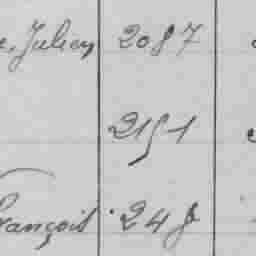 Julien 2087
2151
François 248